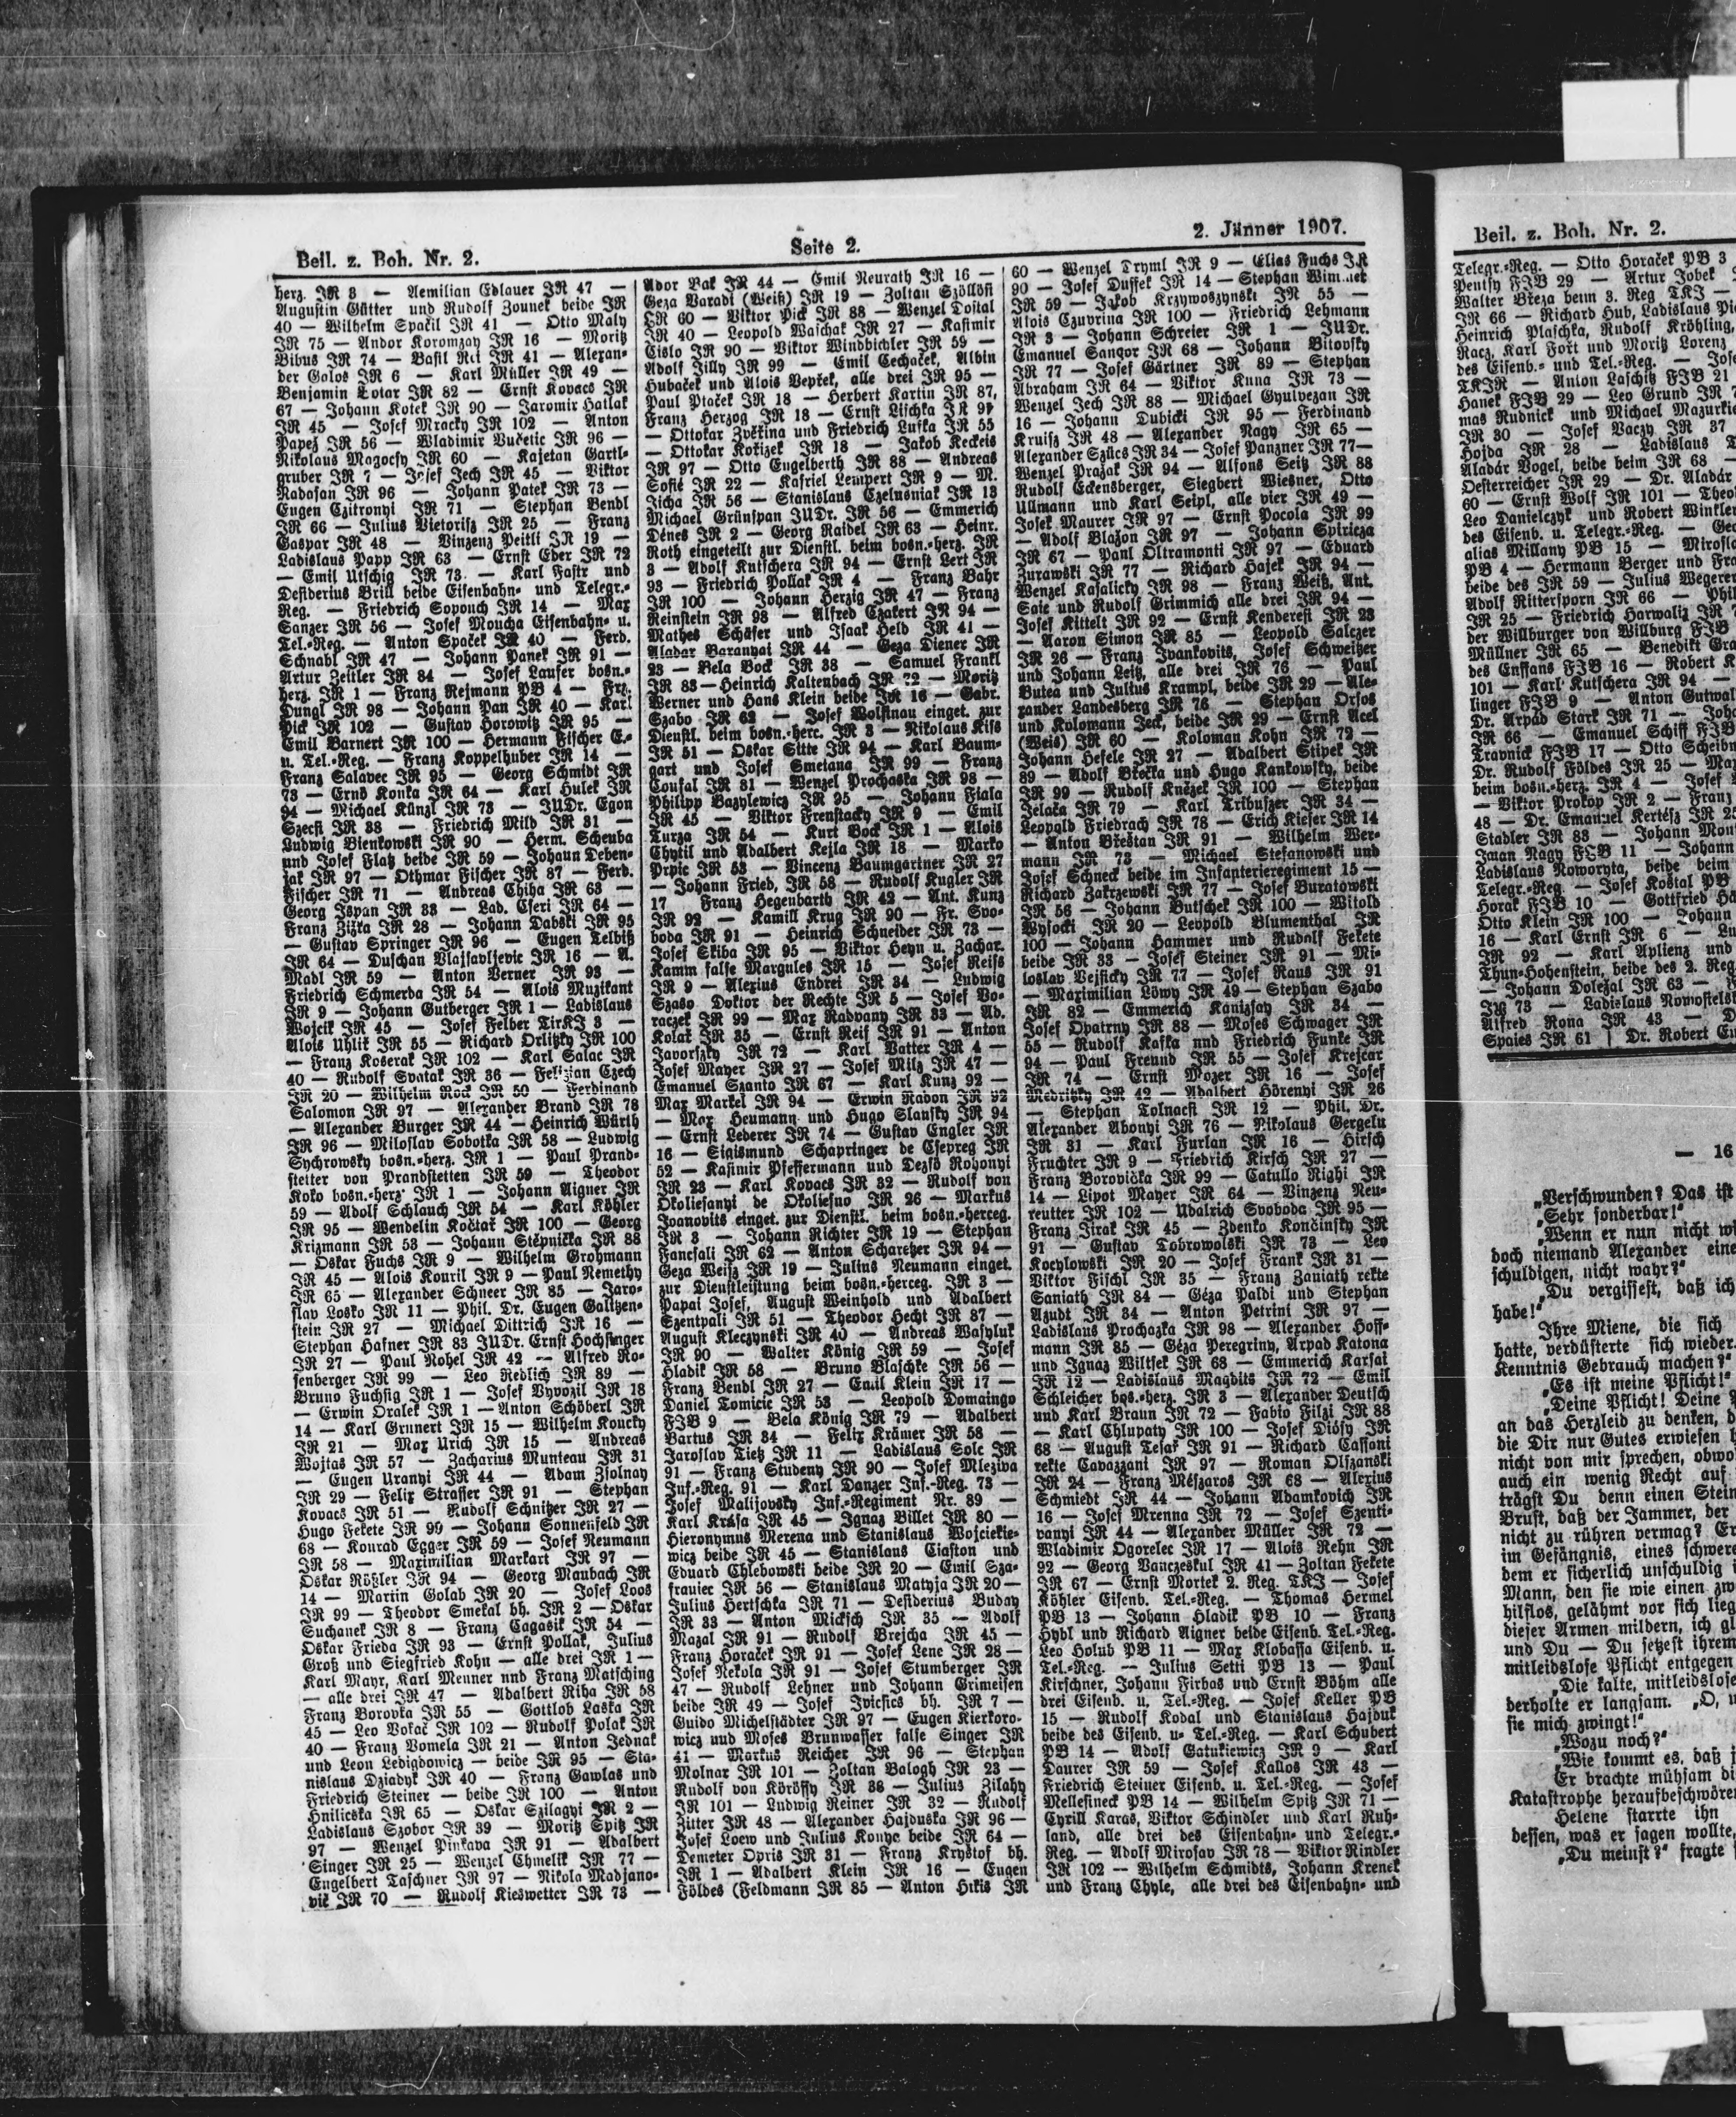 Beil. z. Boh. Nr. 2.
Seite 2.
2. Jänner 1907.
herz. JR 3 — Aemilian Edlauer JR 47 —
Augustin Gütter und Rudolf Zounek beide JR
40 — Wilhelm Spačil JR 41 — Otto Maly
JR 75 — Andor Koromzay JR 16 — Moritz
Bibus JR 74 — Basil JR 41 — Alexan-
der Golos JR 6 — Karl Müller JR 49 —
Benjamin Lotar JR 82 — Ernst Kovacs JR
67 — Johann Kotek JR 90 — Jaromir Hatlak
JR 45 — Josef Mracky JR 102 — Anton
Papež JR 56 — Wladimir Vučetic JR 96 —
Nikolaus Magocsy JR 60 — Kajetan Gartl-
gruber JR 7 — Josef Jech JR 45 — Viktor
Nadasan JR 96 — Johann Patek JR 73 —
Eugen Czitronyi JR 71 — Stephan Bendl
JR 66 — Julius Vietorisz JR 25 — Franz
Gaspar JR 48 — Vinzenz Peitli JR 19 —
Ladislaus Papp JR 63 — Ernst Eder JR 72
— Emil Utschig JR 73 — Karl Fastr und
Desiderius Brill beide Eisenbahn- und Telegr.-
Reg. — Friedrich Sopouch JR 14 — Max
Sanzer JR 56 — Josef Moucha Eisenbahn- u.
Tel.-Reg. — Anton Spaček JR 40 — Ferd.
Schnabl JR 47 — Johann Panek JR 91 —
Artur Zeitler JR 84 — Josef Lauser bosn.-
herz. JR 1 — Franz Rejmann PB 4 — Frz.
Dungl JR 98 — Johann Pan JR 40 — Karl
Pick JR 102 — Gustav Horowitz JR 95 —
Emil Barnert JR 100 — Hermann Fischer E.-
u. Tel.-Reg. — Franz Koppelhuber JR 14 —
Franz Salavec JR 95 — Georg Schmidt JR
73 — Ernö Konka JR 64 — Karl Hulek JR
94 — Michael Künzl JR 73 — JUDr. Egon
Szecsi JR 38 — Friedrich Mild JR 31 —
Ludwig Bienkowski JR 90 — Herm. Scheuba
und Josef Flatz beide JR 59 — Johann Deben-
jak JR 97 — Othmar Fischer JR 87 — Ferd.
Fischer JR 71 — Andreas Chiha JR 68 —
Georg Ispan JR 33 — Lad. Cseri JR 64 —
Franz Zižka JR 28 — Johann Dabski JR 95
— Gustav Springer JR 96 — Eugen Telbiß
JR 64 — Duschan Vlajsavljevic JR 16 — A.
Madl JR 59 — Anton Verner JR 93 —
Friedrich Schmerda JR 54 — Alois Muzikant
JR 9 — Johann Gutberger JR 1 — Ladislaus
Wojcik JR 45 — Josef Felber TirKJ 3 —
Alois Uhlik JR 55 — Richard Orlitzky JR 100
— Franz Koserak JR 102 — Karl Salac JR
40 — Rudolf Svatak JR 36 — Felizian Czech
JR 20 — Wilhelm Rock JR 50 — Ferdinand
Salomon JR 97 — Alexander Brand JR 78
— Alexander Burger JR 44 — Heinrich Würth
JR 96 — Miloslav Sobotka JR 58 — Ludwig
Sychrowsky bosn.-herz. JR 1 — Paul Prand-
stetter von Prandstetten JR 59 — Theodor
Koko bosn.-herz. JR 1 — Johann Aigner JR
59 — Adolf Schlauch JR 54 — Karl Köhler
JR 95 — Wendelin Kočtař JR 100 — Georg
Krizmann JR 53 — Johann Stěpnička JR 88
— Oskar Fuchs JR 9 — Wilhelm Grohmann
JR 45 — Alois Kouril JR 9 — Paul Nemethy
JR 65 — Alexander Schneer JR 85 — Jaro-
slav Losko JR 11 — Phil. Dr. Eugen Galitzen-
stein JR 27 — Michael Dittrich JR 16 —
Stephan Hafner JR 83 JUDr. Ernst Hochsinger
JR 27 — Paul Nohel JR 42 — Alfred Ro-
senberger JR 99 — Leo Redlich JR 89 —
Bruno Fuchsig JR 1 — Josef Vyvozil JR 18
— Erwin Oralek JR 1 — Anton Schöberl JR
14 — Karl Grunert JR 15 — Wilhelm Koucky
JR 21 — Max Urich JR 15 — Andreas
Wojtas JR 57 — Zacharius Munteau JR 31
— Eugen Uranyi JR 44 — Adam Zsolnay
JR 29 — Felix Strasser JR 91 — Stephan
Kovacs JR 51 — Rudolf Schnitzer JR 27 —
Hugo Fekete JR 99 — Johann Sonnenfeld JR
68 — Konrad Egger JR 59 — Josef Neumann
JR 58 — Maximilian Markart JR 97 —
Oskar Rößler JR 94 — Georg Maubach JR
14 — Martin Golab JR 20 — Josef Loos
JR 99 — Theodor Smekal bh. JR 2 — Oskar
Suchanek JR 8 — Franz Cagasik JR 54 —
Oskar Frieda JR 93 — Ernst Pollak, Julius
Groß und Siegfried Kohn — alle drei JR 1 —
Karl Mayr, Karl Menner nnd Franz Matsching
— alle drei JR 47 — Adalbert Riha JR 58
Franz Borovka JR 55 — Gottlob Laska JR
45 — Leo Vokač JR 102 — Rudolf Polak JR
40 — Franz Vomela JR 21 — Anton Jednak
und Leon Ledigdowicz — beide JR 95 — Sta-
nislaus Dziadyk JR 40 — Franz Gawlas und
Friedrich Steiner — beide JR 100 — Anton
Hnilicska JR 65 — Oskar Szilagyi JR 2 —
Ladislaus Szobor JR 39 — Moritz Spitz JR
97 — Wenzel Pinkava JR 91 — Adalbert
Singer JR 25 — Wenzel Chmelik JR 77 —
Engelbert Taschner JR 97 — Nikola Madjano-
vič JR 70 — Rudolf Kieswetter JR 73 —
Ador Bak JR 44 — Emil Neurath JR 16 —
Geza Varadi (Weiß) JR 19 — Zoltan Szöllösi
JR 60 — Viktor Pick JR 88 — Wenzel Dostal
JR 40 — Leopold Wajchak JR 27 — Kasimir
Cislo JR 90 — Viktor Windbichler JR 59 —
Adolf Jilly JR 99 — Emil Cechaček, Albin
Hubaček und Alois Vepřek, alle drei JR 95 —
Paul Ptaček JR 18 — Herbert Kartin JR 87,
Franz Herzog JR 18 — Ernst Lischka JR 97
— Ottokar Zvěřina und Friedrich Lufka JR 55
— Ottokar Kořizek JR 18 — Jakob Keckeis
JR 97 — Otto Engelberth JR 88 — Andreas
Sofić JR 22 — Kasriel Lempert JR 9 — M.
Jicha JR 56 — Stanislaus Czelusniak JR 13
Michael Grünspan JUDr. JR 56 — Emmerich
Dénes JR 2 — Georg Raidel JR 63 — Heinr.
Roth eingeteilt zur Dienstl. beim bosn.-herz. JR
3 — Adolf Kutschera JR 94 — Ernst Lert JR
93 — Friedrich Pollak JR 4 — Franz Bahr
JR 100 — Johann Herzig JR 47 — Franz
Reinstein JR 98 — Alfred Czakert JR 94 —
Mathes Schäfer und Isaak Held JR 41 —
Aladar Baranyai JR 44 — Geza Diener JR
23 — Bela Bock JR 38 — Samuel Frankl
JR 83 — Heinrich Kaltenbach JR 72 — Moritz
Werner und Hans Klein beide JR 16 — Gabr.
Szabo JR 62 — Josef Wolfinau einget. zur
Dienstl. beim bosn.-herc. JR 3 — Nikolaus Kiss
JR 51 — Oskar Sitte JR 94 — Karl Baum-
gart und Josef Smetana JR 99 — Franz
Coufal JR 81 — Wenzel Prochaska JR 98 —
Philipp Bazylewicz JR 95 — Johann Fiala
JR 45 — Viktor Frenstacky JR 9 — Emil
Turza JR 54 — Kurt Bock JR 1 — Alois
Chytil und Adalbert Kejla JR 18 — Marko
Prpic JR 53 — Vincenz Baumgartner JR 27
— Johann Fried, JR 58 — Rudolf Kugler JR
17 Franz Hegenbarth JR 42 — Ant. Kunz
JR 92 — Kamill Krug JR 90 — Fr. Svo-
boda JR 91 — Heinrich Schneider JR 73 —
Josef Skiba JR 95 — Viktor Heyn u. Zachar.
Kamm false Margules JR 15 — Josef Reiss
JR 9 — Alexius Endrei JR 34 — Ludwig
Szaso Doktor der Rechte JR 5 — Josef Vo-
raczek JR 99 — Max Radvany JR 33 — Ad.
Kolař JR 35 — Ernst Reif JR 91 — Anton
Javorszky JR 72 — Karl Vatter JR 4 —
Josef Mayer JR 27 — Josef Milz JR 47 —
Emanuel Szanto JR 67 — Karl Kunz 92 —
Max Markel JR 94 — Erwin Radon JR 92
— Max Heumann und Hugo Slansky JR 94
— Ernst Lederer JR 74 — Gustav Engler JR
16 — Sigismund Schapringer de Csepreg JR
52 — Kasimir Pfeffermann und Dezsö Rohonyi
JR 23 — Karl Kovacs JR 32 — Rudolf von
Okoliesanyi de Okoliesno JR 26 — Markus
Joanovits einget. zur Dienstl. beim bosn.-herceg.
JR 3 — Johann Richter JR 19 — Stephan
Fancsali JR 62 — Anton Scharetzer JR 94 —
Geza Weisz JR 19 — Julius Neumann einget.
zur Dienstleistung beim bosn.-herceg. JR 3 —
Papai Josef, August Weinhold und Adalbert
Szentpali JR 51 — Theodor Hecht JR 87 —
August Kleczynski JR 40 — Andreas Wasyluk
JR 90 — Walter König JR 59 — Josef
Hladik JR 58 — Bruno Blaschke JR 56 —
Franz Bendl JR 27 — Emil Klein JR 17 —
Daniel Tomicic JR 53 — Leopold Domaingo
FJB 9 — Bela König JR 79 — Adalbert
Bartus JR 34 — Felix Krämer JR 58 —
Jaroslav Tietz JR 11 — Ladislaus Solc JR
91 — Franz Studeny JR 90 — Josef Mleziva
Inf.-Reg. 91 — Karl Danzer Inf.-Reg. 73 —
Josef Malijovsky Inf.-Regiment Nr. 89 —
Karl Krása JR 45 — Ignaz Billet JR 80 —
Hieronymus Merena und Stanislaus Wojciekie-
wicz beide JR 45 — Stanislaus Ciaston und
Eduard Chlebowski beide JR 20 — Emil Sza-
frauiec JR 56 — Stanislaus Matyja JR 20 —
Julius Hertschka JR 71 — Desiderius Buday
JR 33 — Anton Micksch JR 35 — Adolf
Mazal JR 91 — Rudolf Brejcha JR 45 —
Franz Horaček JR 91 — Josef Lene JR 28 —
Josef Nekola JR 91 — Josef Stumberger JR
47 — Rudolf Lehner und Johann Grimeisen
beide JR 49 — Josef Ivicsics bh. JR 7 —
Guido Michelstädter JR 97 — Eugen Kierkoro-
wicz und Moses Brunwasser false Singer JR
41 — Markus Reicher JR 96 — Stephan
Molnar JR 101 — Zoltan Balogh JR 23 —
Rudolf von Köröffy JR 38 — Julius Zilahy
JR 101 — Ludwig Reiner JR 32 — Rudolf
Zitter JR 48 — Alexander Hajduska JR 96 —
Josef Loew und Julius Konyc beide JR 64 —
Demeter Opris JR 31 — Franz Kryštof bh.
JR 1 — Adalbert Klein JR 16 — Eugen
Földes (Feldmann JR 85 — Anton JR
60 — Wenzel Tryml JR 9 — Elias Fuchs JR
90 — Josef Duffek JR 14 — Stephan
JR 59 — Jakob Krzywoszynski JR 55 —
Alois Czuvrina JR 100 — Friedrich Lehmann
JR 3 — Johann Schreier JR 1 — JUDr.
Emanuel Sangor JR 68 — Johann Bitovsky
JR 77 — Josef Gärtner JR 89 — Stephan
Abraham JR 64 — Viktor Kuna JR 73 —
Wenzel Jech JR 88 — Michael Gyulvezan JR
16 — Johann Dubicki JR 95 — Ferdinand
Kruisz JR 48 — Alexander Nagy JR 65 —
Alexander Szücs JR 34 — Josef Panzner JR 77—
Wenzel Pražak JR 94 — Alfons Seitz JR 88
Rudolf Eckensberger, Siegbert Wiesner, Otto
Ullmann und Karl Seipl, alle vier JR 49 —
Josef Maurer JR 97 — Ernst Pocola JR 99
— Adolf Blažon JR 97 — Johann Spiricza
JR 67 — Panl Oltramonti JR 97 — Eduard
Zurawski JR 77 — Richard Hajek JR 94 —
Wenzel Kasalicky JR 98 — Franz Weiß, Ant.
Saie und Rudolf Grimmich alle drei JR 94 —
Josef Kittelt JR 92 — Ernst Kenderesi JR 23
— Aaron Simon JR 85 — Leopold Salczer
JR 26 — Franz Ivankovits, Josef Schweitzer
und Johann Leitz, alle drei JR 76 — Paul
Butea und Julius Krampl, beide JR 29 — Ale-
xander Landesberg JR 76 — Stephan Orsos
und Kolomann Jeck, beide JR 29 — Ernst Acel
(Weis) JR 60 — Koloman Kohn JR 72 —
Johann Hefele JR 27 — Adalbert Stipek JR
89 — Adolf Břečka und Hugo Kankowsky, beide
JR 99 — Rudolf Kněžek JR 100 — Stephan
Jelača JR 79 — Karl Tribuszer JR 34 —
Leopold Friedrach JR 78 — Erich Kiefer JR 14
— Anton Břestan JR 91 — Wilhelm Wer-
mann JR 73 — Michael Stefanowski und
Josef Schneck beide im Infanterieregiment 15 —
Richard Zakrzewski JR 77 — Josef Buratowski
JR 56 — Johann Butschek JR 100 — Witold
Wysocki JR 20 — Leopold Blumenthal JR
100 — Johann Hammer und Rudolf Fekete
beide JR 33 — Josef Steiner JR 91 — Mi-
loslav Vejsicky JR 77 — Josef Raus JR 91
— Maximilian Löwy JR 49 — Stephan Szabo
JR 82 — Emmerich Kanizsay JR 34 —
Josef Opatrny JR 88 — Moses Schwager JR
55 — Rudolf Kafka nnd Friedrich Funke JR
94 — Paul Freund JR 55 — Josef Krejcar
JR 74 — Ernst Mozer JR 16 — Josef
Medritzky JR 42 — Adalbert Hörenyi JR 26
— Stephan Tolnacsi JR 12 — Phil. Dr.
Alexander Abonyi JR 76 — Nikolaus Gergely
JR 31 — Karl Furlan JR 16 — Hirsch
Fruchter JR 9 — Friedrich Kirsch JR 27 —
Franz Borovička JR 99 — Catullo Righi JR
14 — Lipot Mayer JR 64 — Vinzenz Neu-
reutter JR 102 — Udalrich Svoboda JR 95 —
Franz Jirak JR 45 — Zdenko Končinsky JR
91 — Gustav Dobrowolski JR 73 — Leo
Kocylowski JR 20 — Josef Frank JR 31 —
Viktor Fischl JR 35 — Franz Zaniath rekte
Saniath JR 84 — Géza Paldi und Stephan
Azudi JR 34 — Anton Petrini JR 97 —
Ladislaus Prochazka JR 98 — Alexander Hoff-
mann JR 85 — Géza Peregriny, Arpad Katona
und Ignaz Wiltsek JR 68 — Emmerich Karsai
JR 12 — Ladislaus Magdits JR 72 — Emil
Schleicher bos.-herz. JR 3 — Alexander Deutsch
und Karl Braun JR 72 — Fabio Filzi JR 88
— Karl Chlupaty JR 100 — Josef Diósy JR
68 — August Tesař JR 91 — Richard Cassoni
rekte Cavazzani JR 97 — Roman Olszanski
JR 24 — Franz Mészaros JR 68 — Alexius
Schmiedt JR 44 — Johann Adamkovich JR
16 — Josef Mrenna JR 72 — Josef Szenti-
vanyi JR 44 — Alexander Müller JR 72 —
Wladimir Ogorelec JR 17 — Alois Rehn JR
92 — Georg Vanczeskul JR 41 — Zoltan Fekete
JR 67 — Ernst Mortek 2. Reg. TKJ — Josef
Köhler Eisenb. Tel.-Reg. — Thomas Hermel
PB 13 — Johann Hladik PB 10 — Franz
Hybl und Richard Aigner beide Eisenb. Tel.-Reg.
Leo Holub PB 11 — Max Klobassa Eisenb. u.
Tel.-Reg. — Julius Setti PB 13 — Paul
Kirschner, Johann Firbas und Ernst Böhm alle
drei Eisenb. u. Tel.-Reg. — Josef Keller PB
15 — Rudolf Kodal und Stanislaus Hajduk
beide des Eisenb. u- Tel.-Reg. — Karl Schubert
PB 14 — Adolf Gatukiewicz JR 9 — Karl
Daurer JR 59 — Josef Kallos JR 43 —
Friedrich Steiner Eisenb. u. Tel.-Reg. — Josef
Mellesineck PB 14 — Wilhelm Spitz JR 71 —
Cyrill Karas, Viktor Schindler und Karl Ruh-
land, alle drei des Eisenbahn- und Telegr.-
Reg. — Adolf Mirosav JR 78 — Viktor Rindler
JR 102 — Wilhelm Schmidts, Johann Krenek
und Franz Chyle, alle drei des Eisenbahn- und
Beil. z. Boh. Nr. 2.
Telegr.-Reg. — Otto Horaček PB 3
Pentsy FJB 29 — Artur Jobek
Walter Březa beim 3. Reg TKJ —
JR 66 — Richard Hub, Ladislaus
Heinrich Plaschka, Rudolf Kröhling,
Racz, Karl Fořt und Moritz Lorenz
des Eisenb.- und Tel.-Reg. —
TKJR — Anton Laschitz FJB 21
Hanek FJB 29 — Leo Grund JR
mas Rudnick und Michael
JR 30 — Josef Vaczy JR 37
Hojda JR 28 — Ladislaus
Aladár Vogel, beide beim JR 68 —
Oesterreicher JR 29 — Dr. Aladár
60 — Ernst Wolf JR 101 —
Leo Danielczyk und Robert Winkler
des Eisenb. u. Telegr.-Reg. —
alias Millany PB 15 —
PB 4 — Hermann Berger und
beide des JR 59 — Julius Wegerer
Adolf Rittersporn JR 66 —
JR 25 — Friedrich Harwalik JR
der Willburger von Willburg FJB
Müllner JR 65 — Benedikt
des Enffans FJB 16 — Robert
101 — Karl Kutschera JR 94 —
linger FJB 9 — Anton
Dr. Arpád Stark JR 71 —
JR 66 — Emanuel Schiff FJB
Travnick FJB 17 — Otto
Dr. Rudolf Földes JR 25 —
beim bosn.-herz. JR 4 — Josef
— Viktor Prokop JR 2 — Franz
48 — Dr. Emanuel Kertész JR 25
Stadler JR 83 — Johann
Iman Nagy FJB 11 — Johann
Ladislaus Noworyta, beide beim
Telegr.-Reg. — Josef Koštal PB
Horak FJB 10 — Gottfried
Otto Klein JR 100 — Johann
16 — Karl Ernst JR 6 —
JR 92 — Karl Aplienz und
Thun-Hohenstein, beide des 2. Reg.
— Johann Doležal JR 63 —
JR 73 — Ladislaus
Alfred Rona JR 43 —
Spaies JR 61 Dr. Robert
— 16
„Verschwunden? Das ist
„Sehr sonderbar!“
„Wenn er nun nicht
doch niemand Alexander eine
schuldigen, nicht wahr?“
„Du vergissest, daß ich
habe!“
Ihre Miene, die sich
hatte, verdüsterte sich wieder.
Kenntnis Gebrauch machen?“
„Es ist meine Pflicht!“
„Deine Pflicht! Deine
an das Herzleid zu denken,
die Dir nur Gutes erwiesen
nicht von mir sprechen,
auch ein wenig Recht auf
trägst Du denn einen
Brust, daß der Jammer, der
nicht zu rühren vermag?
im Gefängnis, eines
dem er sicherlich unschuldig
Mann, den sie wie einen
hilflos, gelähmt vor sich
dieser Armen mildern, ich
und Du — Du setzest ihrem
mitleidslose Pflicht entgegen
„Die kalte, mitleidslose
derholte er langsam. „O,
sie mich zwingt!“
„Wozu noch?“
„Wie kommt es, daß
Er brachte mühsam
Katastrophe heraufbeschwören
Helene starrte ihn
dessen, was er sagen wollte,
„Du meinst?“ fragte